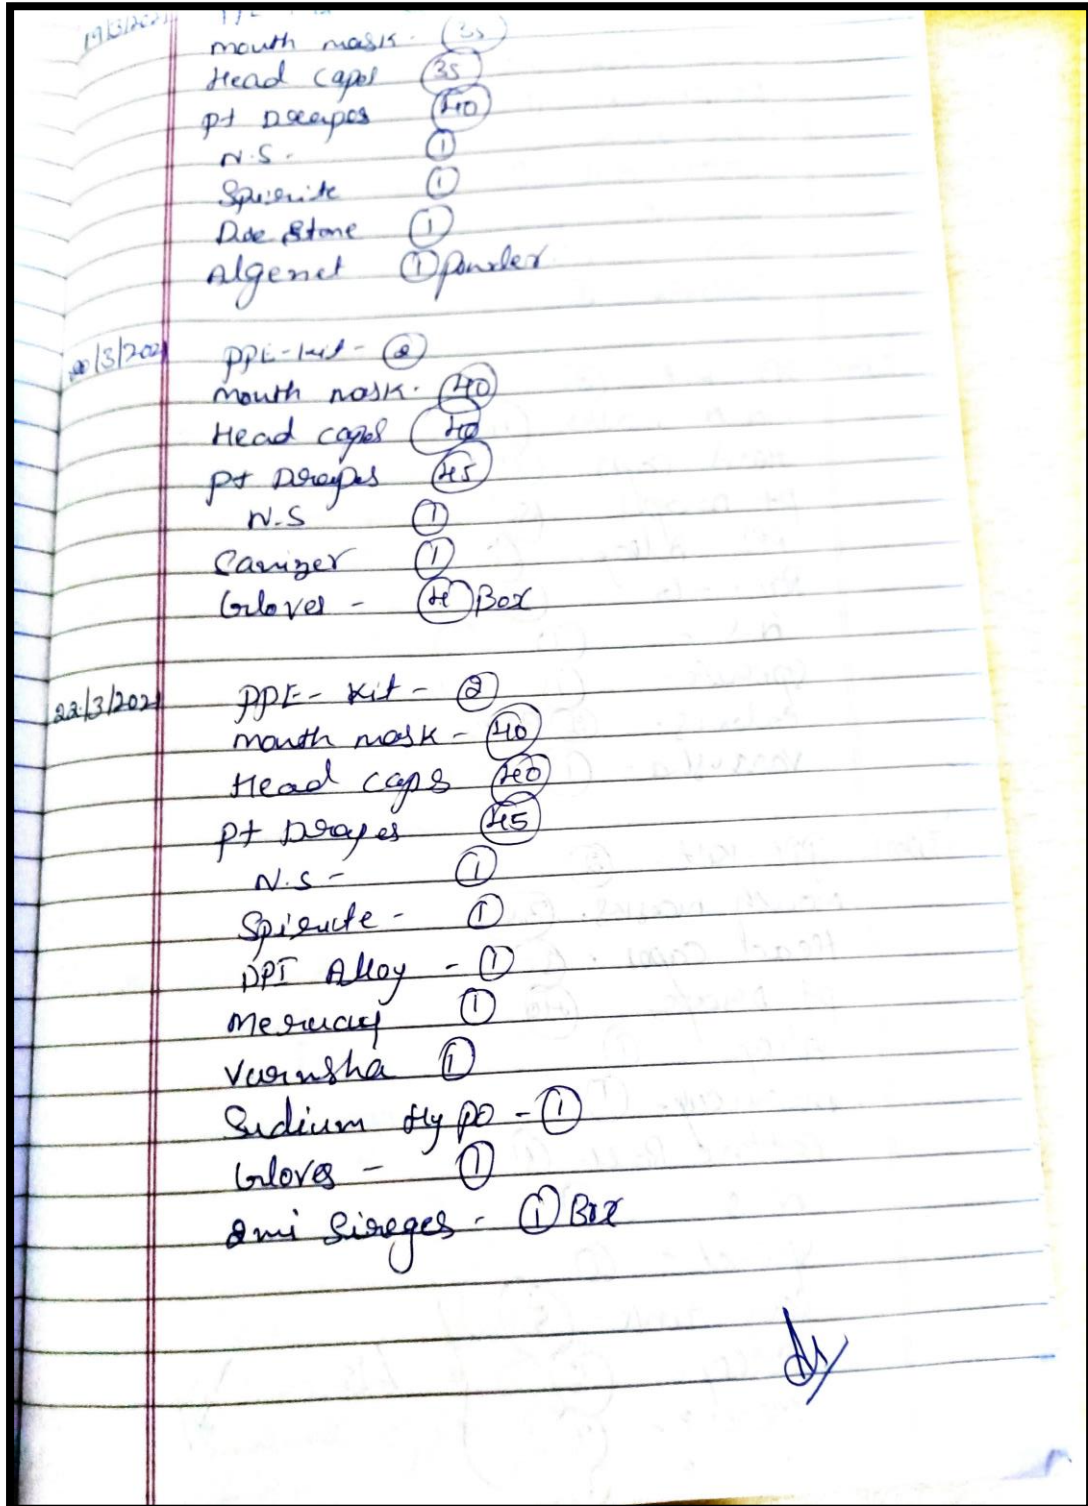 19/3/2021
mouth mask - (35)
Head capes (35)
pt Dreapes (40)
N.S. - (1)
Spierite (1)
Die Stone (1)
Algenet (1) powder
20/3/2021 PPE-kit - (2)
mouth mask - (40)
Head capes (40)
pt Dreapes (45)
N.S (1)
Canizer (1)
Gloves - (4) Box
22/3/2021 PPE - Kit - (2)
mouth mask - (40)
Head caps (40)
pt Drapes (45)
N.S - (1)
Spirute - (1)
DPI Alloy - (1)
Mercuay (1)
Varnsha (1)
Sudium Hypo - (1)
Gloves - (1)
2ml Sireges - (1) Box